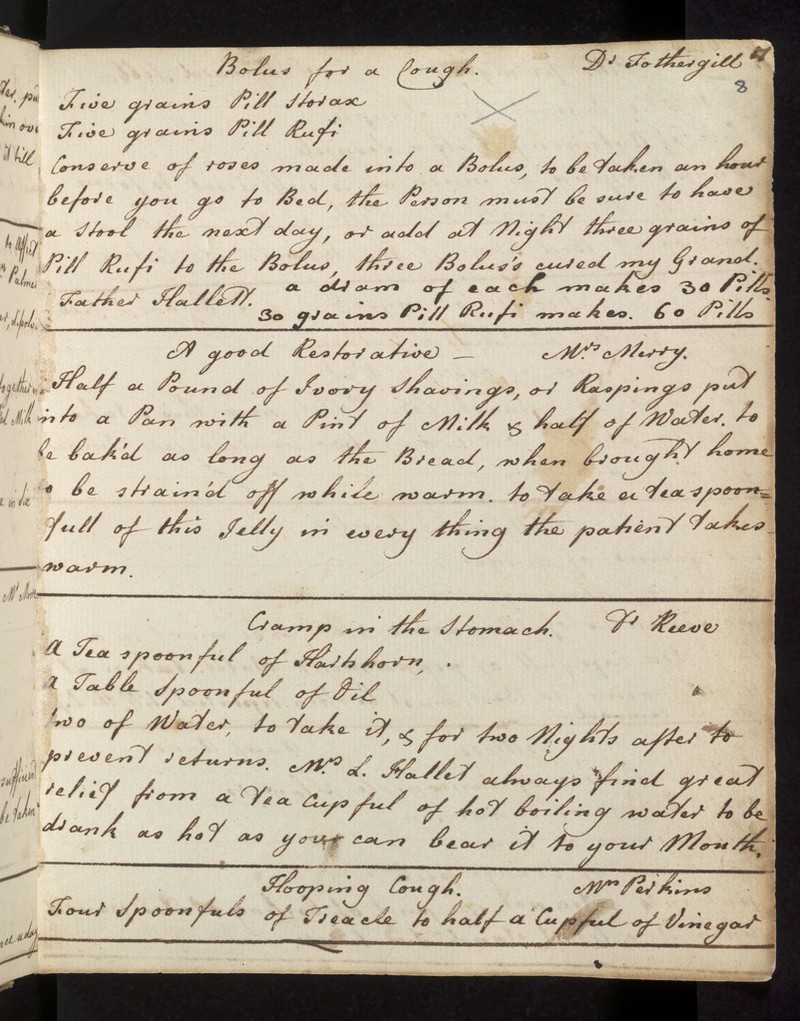 Bolus for a Cough. Dr Fothergill
8
Five grains Pill Storax
Five grains Pill Rufi
Conserve of roses made into a Bolus, to be taken an hour
before you go to Bed, the Person must be sure to have
a Stool the next day, or add at Night three grains of
Pill Rufi to the Bolus, three Bolus's cured my Grand.
Father Hallett. a dram of each makes 30 Pills.
30 grains Pill Rufi makes. 60 Pills
A good Restorative — Mrs Merry.
Half a Pound of Ivory Shavings, or Raspings put
into a Pan with a Pint of Milk & half of Water. to
be bak'd as long as the Bread, when brought home
to be strain'd off while warm. to take a tea spoon=
full of this Jelly in every thing the patient takes
warm.
Cramp in the Stomach. Dr Reeve
A Tea spoonful of Hartshorn,
A Table Spoonful of Oil
two of Water, to take it, & for two Nights after to
prevent returns. Mrs L. Hallet always find great
relief from a tea Cup ful of hot boiling water to be
drank as hot as you can bear it to your Mouth.
Hooping Cough. Mrs Perkins
Four Spoonfuls of Treacle to half a Cupful of Vinegar